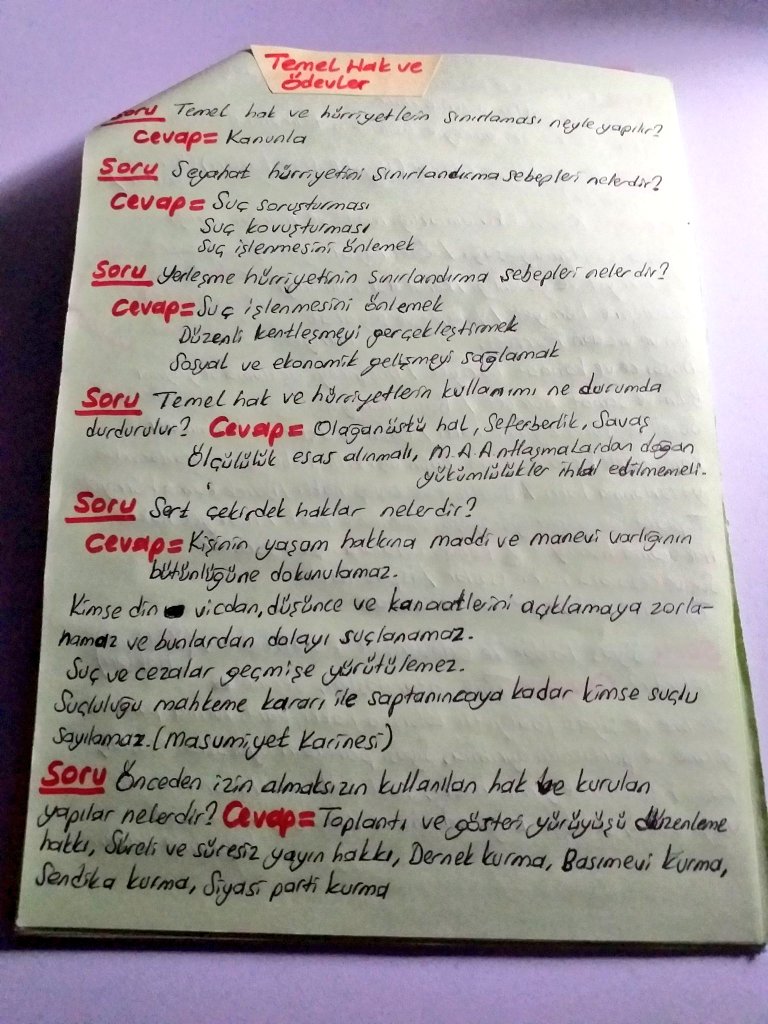 Temel Hak ve
Ödevler
Soru Temel hak ve hürriyetlerin sınırlaması neyle yapılır?
Cevap= Kanunla
Soru Seyahat hürriyetini sınırlandırma sebepleri nelerdir?
Cevap= Suç soruşturması
Suç kovuşturması
Suç işlenmesini önlemek
Soru Yerleşme hürriyetinin sınırlandırma sebepleri nelerdir?
Cevap= Suç işlenmesini önlemek
Düzenli kentleşmeyi gerçekleştirmek
Sosyal ve ekonomik gelişmeyi sağlamak
Soru Temel hak ve hürriyetlerin kullanımı ne durumda
durdurulur? Cevap= Olağanüstü hal, Seferberlik, Savaş
Ölçülülük esas alınmalı, M.A.Antlaşmalardan doğan
yükümlülükler ihlal edilmemeli.
Soru Sert çekirdek haklar nelerdir?
Cevap= Kişinin yaşam hakkına maddi ve manevi varlığının
bütünlüğüne dokunulamaz.
Kimse din vicdan, düşünce ve kanaatlerini açıklamaya zorla-
namaz ve bunlardan dolayı suçlanamaz.
Suç ve cezalar geçmişe yürütülemez.
Suçluluğu mahkeme kararı ile saptanıncaya kadar kimse suçlu
sayılamaz. (Masumiyet Karinesi)
Soru Önceden izin almaksızın kullanılan hak ve kurulan
yapılar nelerdir? Cevap= Toplantı ve gösteri yürüyüşü düzenleme
hakkı, Süreli ve süresiz yayın hakkı, Dernek kurma, Basımevi kurma,
Sendika kurma, Siyasi parti kurma